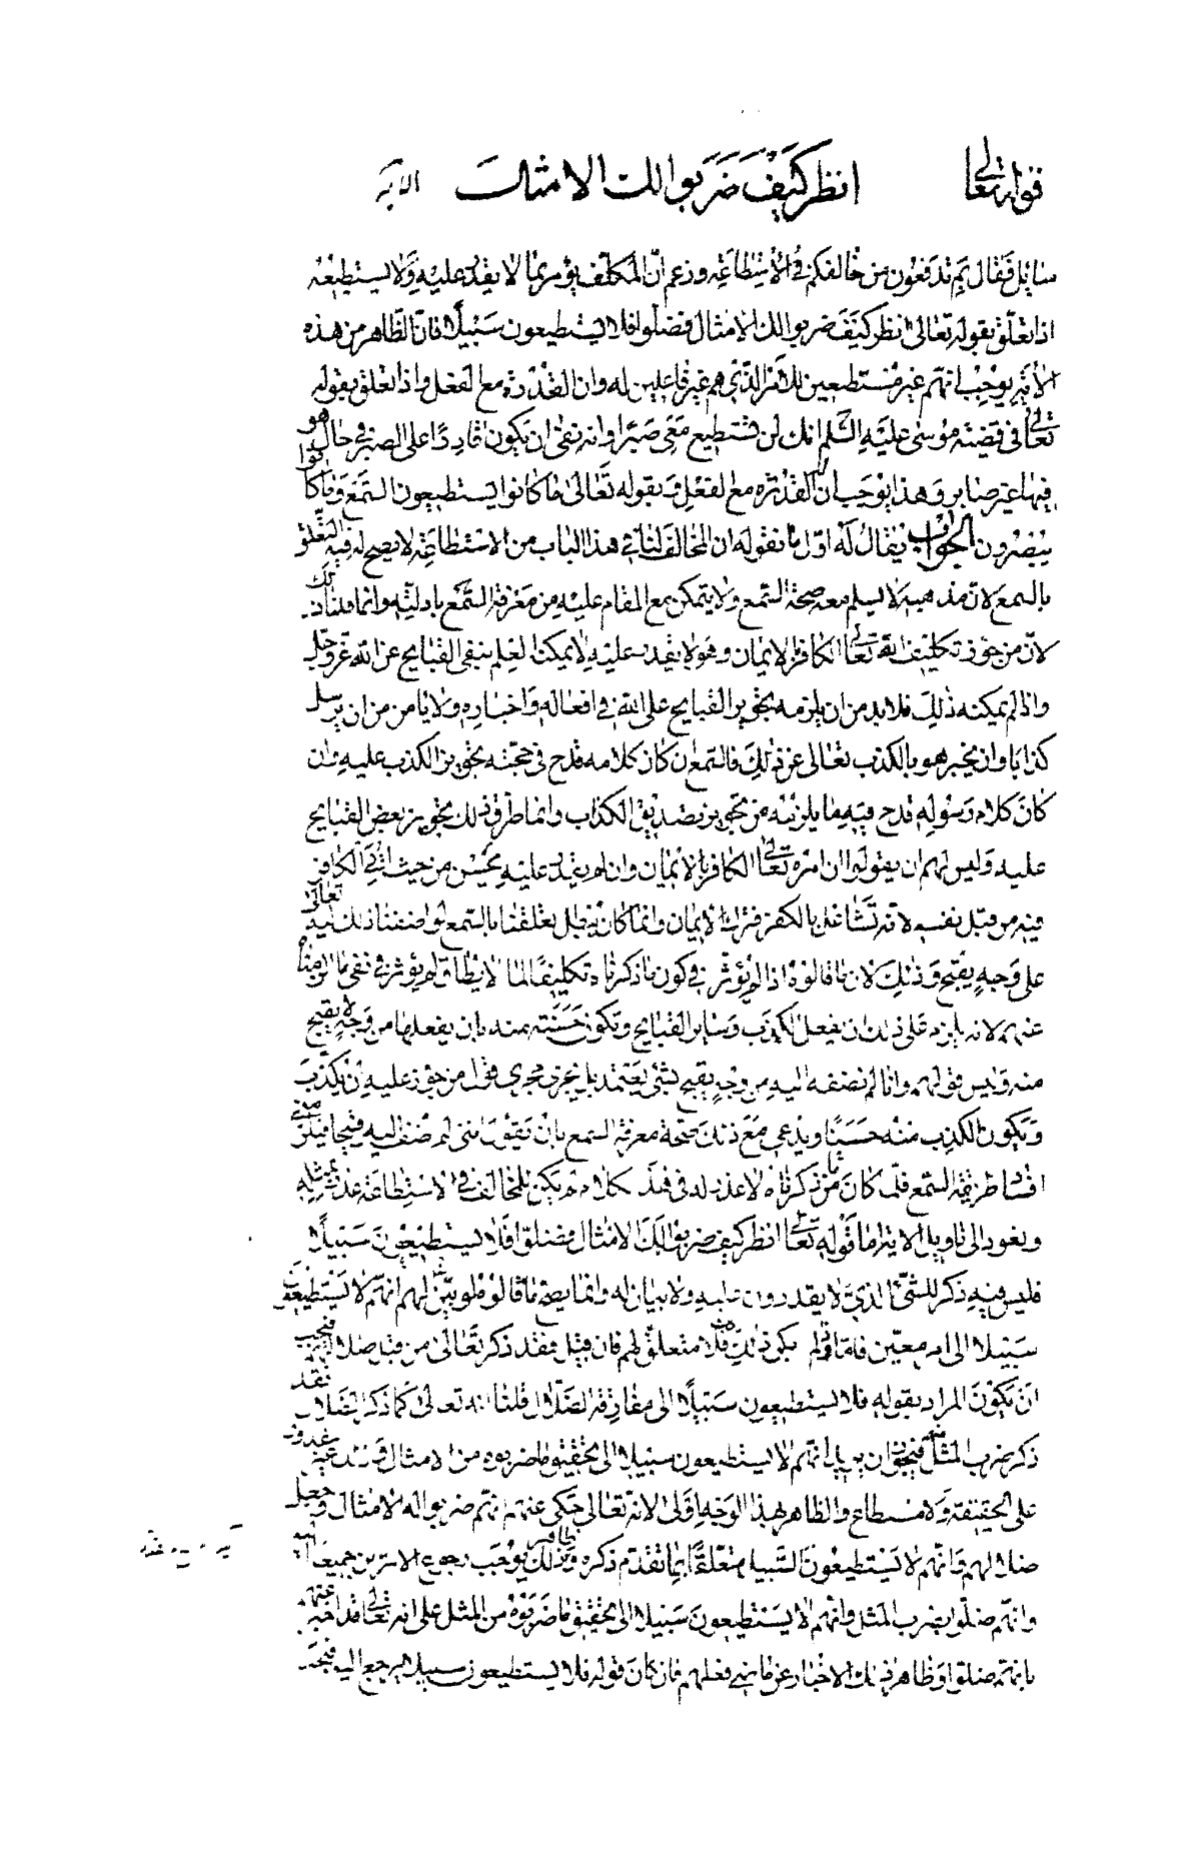 قوله تعالى انظر كيف ضربوا لك الامثال الآية
سايل فقال بم تدفعون من خالفكم في الاستطاعة وزعم ان المكلف يؤمر بما لا يقدر عليه ولا يستطيعه
اذا تعلق بقوله تعالى انظر كيف ضربوا لك الامثال فضلوا فلا يستطيعون سبيلا فان الظاهر من هذه
الآية يوجب انهم غير مستطيعين للامر الذي هم غير فاعلين له وان القدرة مع الفعل واذا تعلق بقوله
تعالى في قصة موسى عليه السلم انك لن تستطيع معي صبرا وانه نفى ان يكون قادرا على الصبر في حال هو
فيها غير صابر وهذا يوجب ان القدرة مع الفعل وبقوله تعالى ما كانوا يستطيعون السمع وما كانوا
يبصرون الجواب يقال له اول ما نقوله ان المخالف لنا في هذا الباب من الاستطاعة لا يصح له فيه التعلق
بالسمع لان مذهبه لا يسلم معه صحة السمع ولا يتمكن مع المقام عليه من معرفة السمع بادلته وانما قلنا ذلك
لان من جوز تكليف الله تعالى الكافر الايمان وهو لا يقدر عليه لا يمكنه العلم بنفي القبايح عن الله عز وجل
واذا لم يمكنه ذلك فلا بد من ان يلزمه تجويز القبايح على الله في افعاله واخباره ولا يأمن من ان يرسل
كذابا وان يخبر هو بالكذب تعالى عن ذلك فالسمع ان كان كلامه قدح في حجته تجويز الكذب عليه وان
كان كلام رسوله قدح فيه ما يلزمه من تجويز تصديق الكذاب وانما طرق ذلك تجويز بعض القبايح
عليه وليس لهم ان يقولوا ان امره تعالى الكافر بالايمان وان لم يقدر عليه يحسن من حيث اتي الكافر
فيه من قبل نفسه لانه تشاغل بالكفر فترك الايمان وانما كان يبطل تعلقنا بالسمع لو اضفنا ذلك اليه تعالى
على وجه يقبح وذلك لان ما قالوه اذا لم يؤثر في كون ما ذكرناه تكليفا لما لا يطاق لم يؤثر في نفي ما الزمناه
عنهم لانه يلزم على ذلك ان يفعل الكذب وساير القبايح وتكون حسنة منه بان يفعلها من وجه لا يقبح
منه وليس قولهم وانا لم نضفه اليه من وجه يقبح بشئ يعتمد بل يجري مجرى قول من جوز عليه ان يكذب
ويكون الكذب منه حسنا ويدعي مع ذلك صحة معرفة السمع بان يقول انني لم اضف اليه قبيحا فيلزمني
افساد طريقة السمع فلما كان من ذكرناه لا عذر له في هذا الكلام لم يكن للمخالف في الاستطاعة عذر بمثله
ونعود الى تاويل الآية اما قوله تعالى انظر كيف ضربوا لك الامثال فضلوا فلا يستطيعون سبيلا
فليس فيه ذكر للشئ الذي لا يقدرون عليه ولا بيان له وانما يصح ما قالوه لو بين لهم انهم لا يستطيعون
سبيلا الى امر معين فاما ولم يكن ذلك فلا متعلق لهم فان قيل فقد ذكر تعالى من قبل ضلالهم فيجب
ان يكون المراد بقوله فلا يستطيعون سبيلا الى مفارقة الضلال قلنا انه تعالى كما ذكر الضلال فقد
ذكر ضرب المثل فيجوز ان يريد انهم لا يستطيعون سبيلا الى تحقيق ما ضربوه من الامثال وذلك غير مقدور
على الحقيقة ولا مستطاع والظاهر بهذا الوجه اولى لانه تعالى حكى عنهم انهم ضربوا له الامثال وجعل
ضلالهم وانهم لا يستطيعون السبيل متعلقا بما تقدم ذكره وظاهر ذلك يوجب رجوع الامرين جميعا اليه
وانهم ضلوا بضرب المثل وانهم لا يستطيعون سبيلا الى تحقيق ما ضربوه من المثل على انه تعالى قد اخبر عنهم
بانهم ضلوا وظاهر ذلك الاخبار عن ماضي فعلهم فان كان قوله فلا يستطيعون سبيلا يرجع اليه فيجب